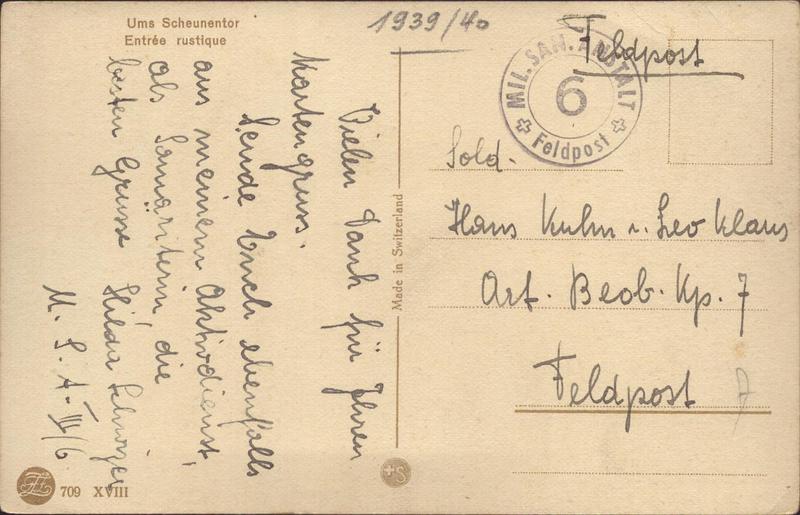 Ums Scheunentor
Entrée rustique
1939/40
Vielen Dank für Ihren
Kartengruss.
Sende Euch ebenfalls
aus meinem Aktivdienst,
als Samäriterin, die
besten Grüsse Hilda
M. S. A. III/6
Made in Switzerland
+S
709 XVIII
MIL. SAN. ANSTALT
6
Feldpost
Feldpost
Sold.
Hans Kuhn u. Leo Klaus
Art. Beob. Kp. 7
Feldpost
7